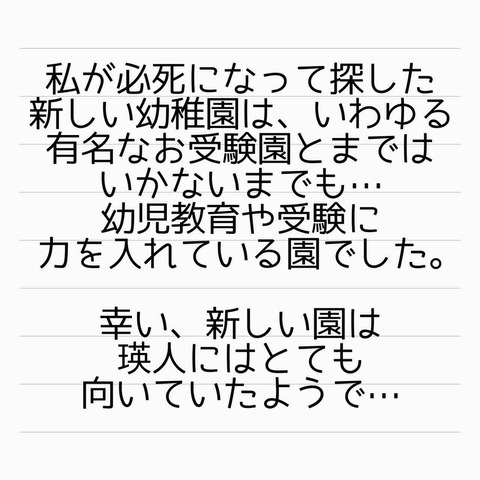 私が必死になって探した
新しい幼稚園は、いわゆる
有名なお受験園とまでは
いかないまでも…
幼児教育や受験に
力を入れている園でした。
幸い、新しい園は
瑛人にはとても
向いていたようで…